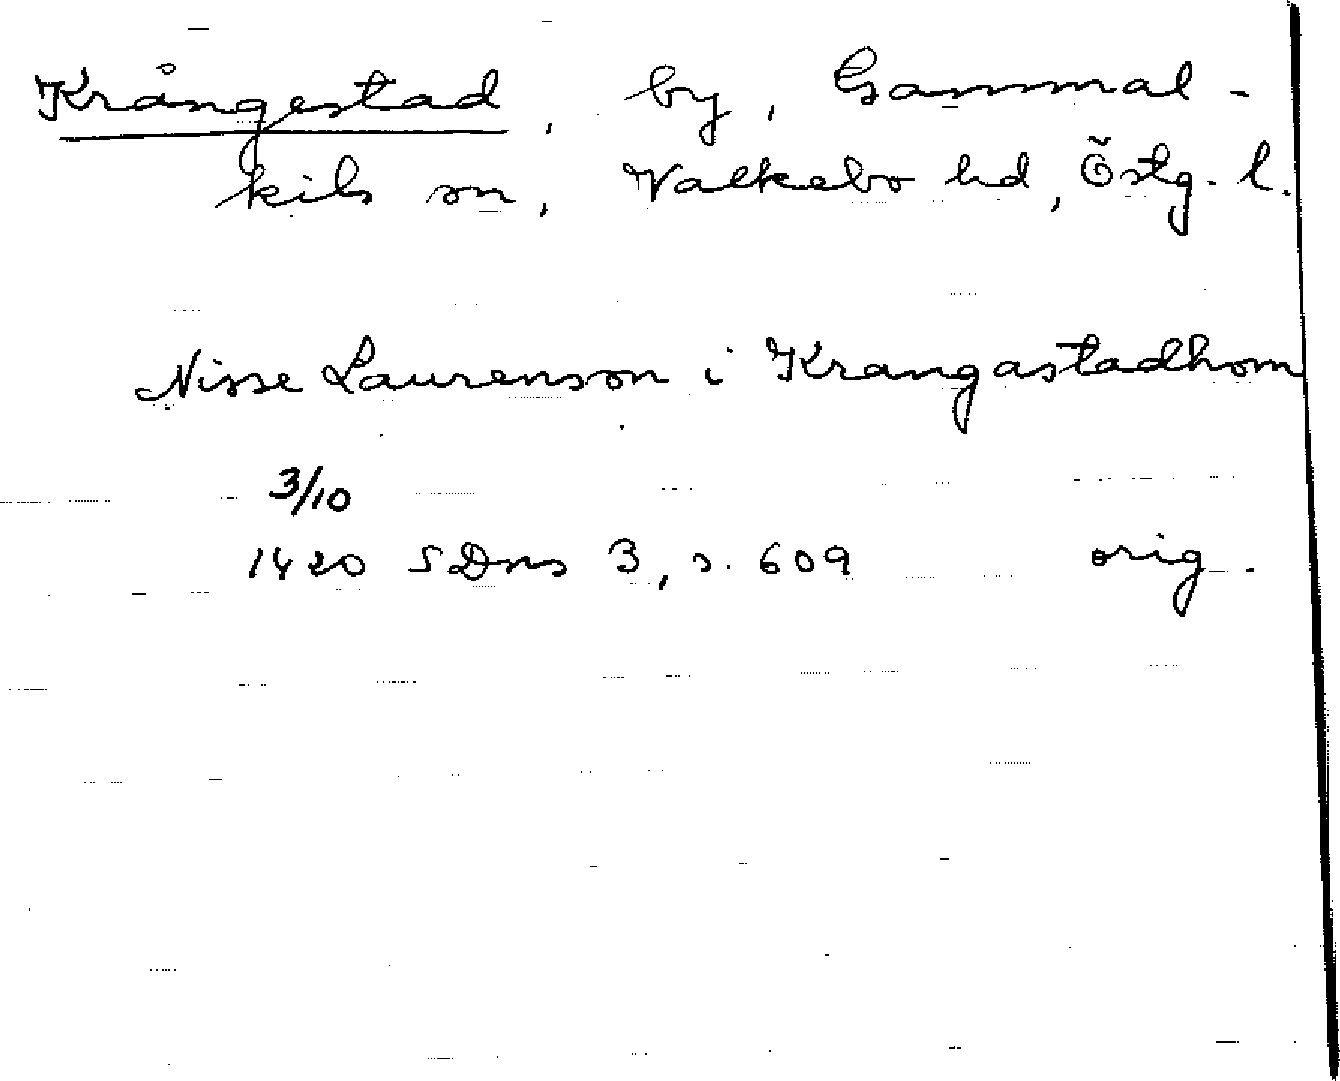 Krångestad, by, Gammal-
kils sn, Valkebo hd, Östg. l.
Nisse Laurenson i Krangastadhom
3/10
1420 SDns 3, s. 609 orig.